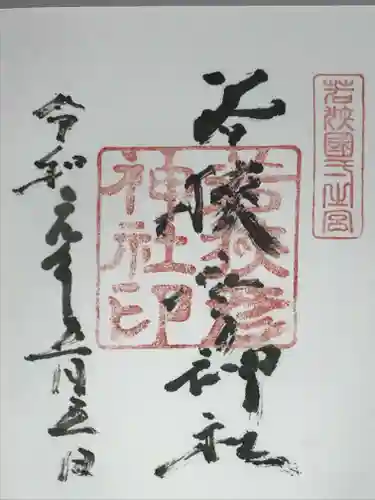 若狭國一之宮
若狭彦神社
若狭彦神社印
令和元年五月五日